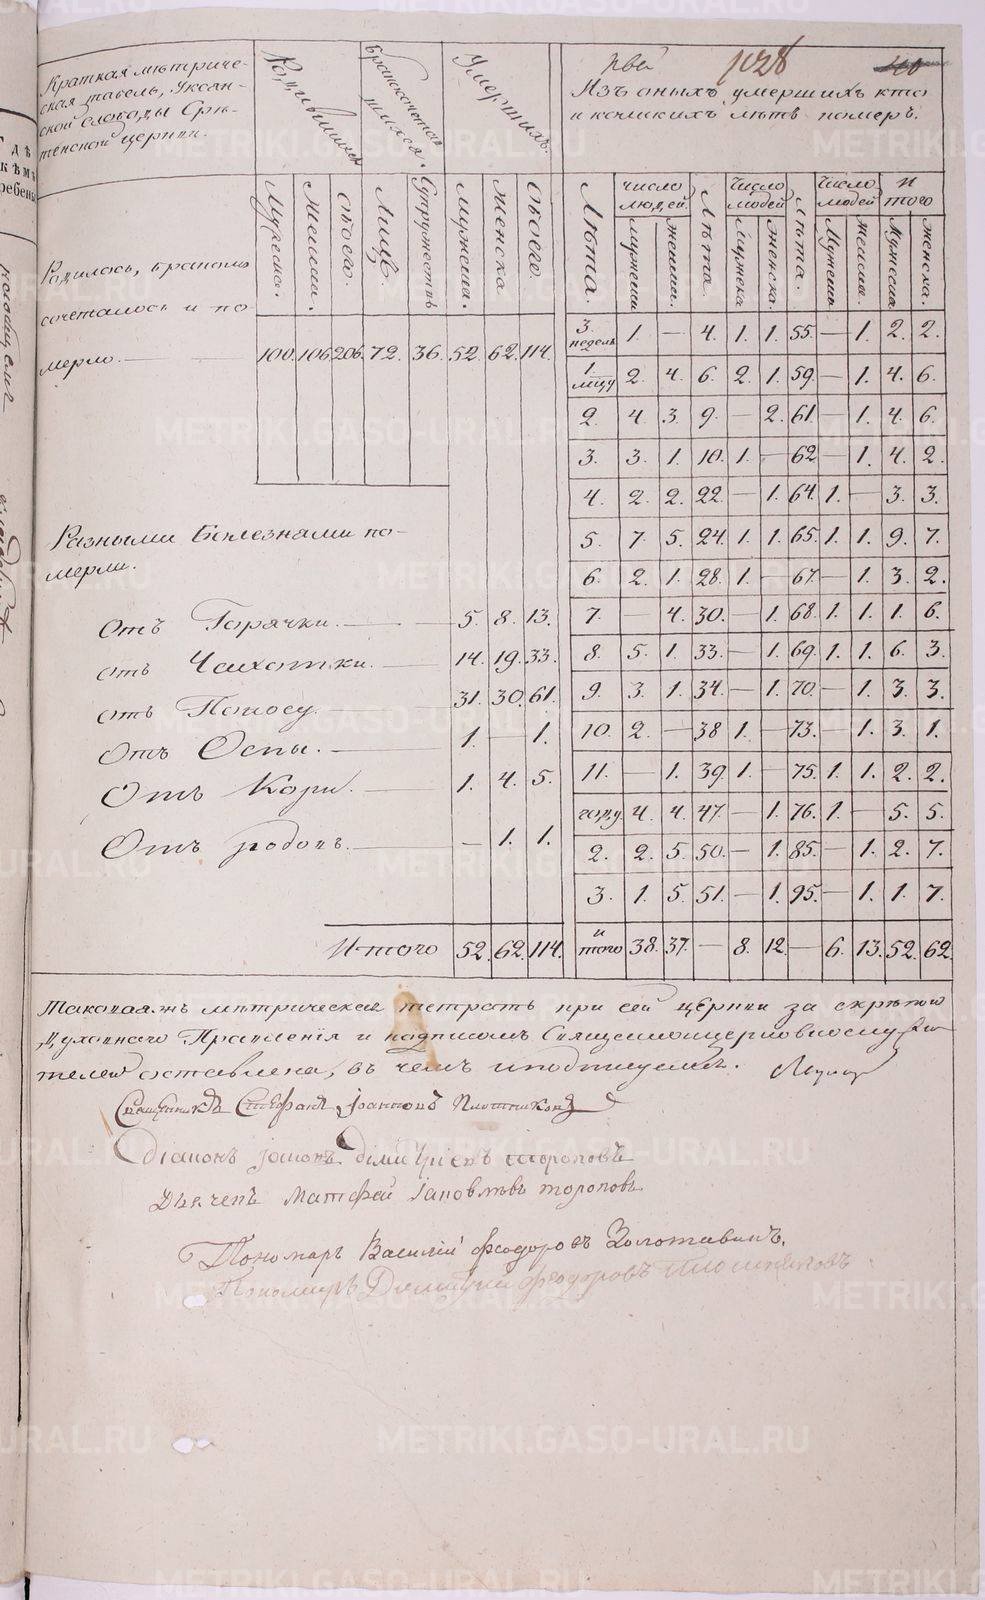 Краткая метриче-
ская табель, Уксян-
ской слободы Срѣ-
тенской церкви.
Родившихся
Бракосочетав
шихся.
Умершихъ.
рвей
1028
Изъ оныхъ умершихъ кто
и коликихъ лѣтъ померъ.
Мужеска. Женска. Обоего. Лицъ. Супружествъ Мужеска. Женска Обоего.
Лѣта. число людей. мужеска женска. Лѣта. Число людей Мужска женска. Лѣта. Число людей Мужеска женска. И того Мужеска женска.
Родилось, бракомъ
сочеталось и по
мерло. 100. 106. 206. 72. 36. 52. 62. 114.
3. недель 1. — 4. 1. 1. 55. — 1. 2. 2.
1. мцу 2. 4. 6. 2. 1. 59. — 1. 4. 6.
2. 4. 3. 9. — 2. 61. — 1. 4. 6.
3. 3. 1. 10. 1. — 62 — 1. 4. 2.
4. 2. 2. 22. — 1. 64. 1. — 3. 3.
5. 7. 5. 24. 1. 1. 65. 1. 1. 9. 7.
6. 2. 1. 28. 1. — 67. — 1. 3. 2.
7. — 4. 30. — 1. 68. 1. 1. 1. 6.
8. 5. 1. 33. — 1. 69. 1. 1. 6. 3.
9. 3. 1. 34. — 1. 70. — 1. 3. 3.
10. 2. — 38 1. — 73. — 1. 3. 1.
11. — 1. 39. 1. — 75. 1. 1. 2. 2.
году. 4. 4. 47. — 1. 76. 1. — 5. 5.
2. 2. 5. 50. — 1. 85. — 1. 2. 7.
3. 1. 5. 51. — 1. 95. — 1. 1. 7.
и того 38. 37. — 8. 12. — 6. 13. 52. 62.
Разными Болезнами по-
мерли.
Отъ Горячки. 5. 8. 13.
отъ Чахотки. 14. 19. 33.
отъ Поносу. 31. 30. 61.
Отъ Оспы. 1. — 1.
Отъ Кори. 1. 4. 5.
Отъ родовъ. — 1. 1.
Итого 52. 62. 114.
Таковая жъ метрическая тетрать при сей церкви за скрѣпою
Духовнаго Правленія и подписомъ Священноцерковнослужи
телей оставлена, въ чемъ и подпишуемся.
Священникъ Стефанъ Іоанновъ Плотниковъ
Діаконъ Іоаннъ Димитріевъ тороповъ
Дьячекъ Матфей Іаковлевъ тороповъ
Пономарь Василій Феодоровъ Золотавинъ.
Пономарь Димитрій Феодоровъ Плотниковъ
METRIKI.GASO-URAL.RU